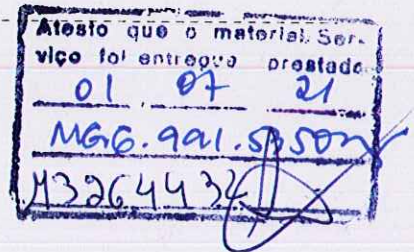 Atesto que o material Ser-
viço foi entregue prestado
01 07 21
MG6.991.
M3264432